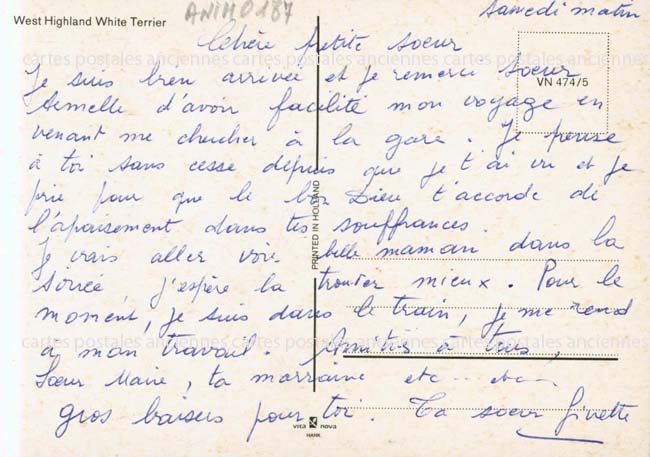 ANIM0187
Samedi matin
West Highland White Terrier
Chère petite soeur
cartes postales anciennes cartes postales anciennes cartes postales anciennes
VN 474/5
Je suis bien arrivée et je remercie soeur
Armelle d'avoir facilité mon voyage en
venant me chercher à la gare. Je pense
à toi sans cesse depuis que je t'ai vu et je
prie pour que le bon Dieu t'accorde de
l'apaisement dans tes souffrances.
PRINTED IN HOLLAND
Je vais aller voir belle maman dans la
soirée, j'espère la trouver mieux. Pour le
moment, je suis dans le train, je me rend
cartes postales anciennes cartes postales anciennes cartes postales anciennes
a mon travail. Amitiés à tous,
Soeur Marie, ta marraine etc... etc...
gros baisers pour toi. Ta soeur Ginette
vita nova
HANK